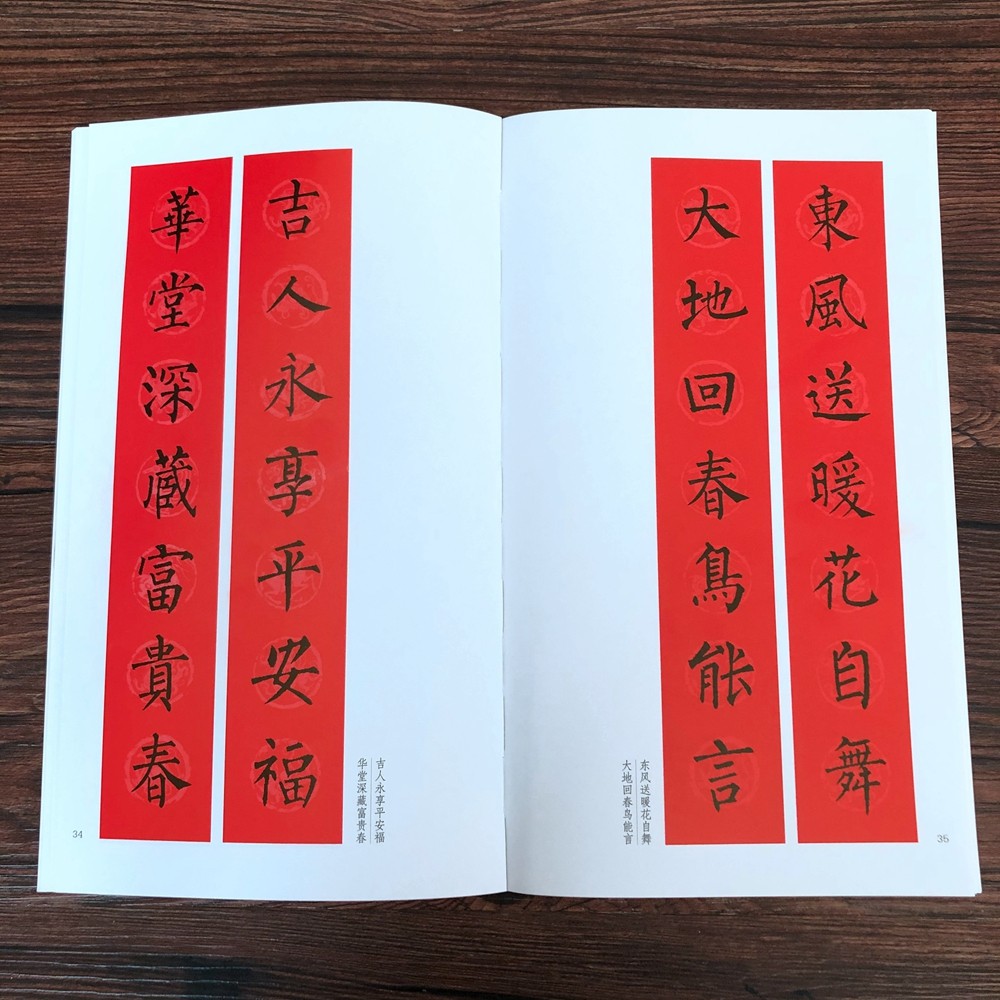 東風送暖花自舞
大地回春鳥能言
东风送暖花自舞
大地回春鸟能言
35
吉人永享平安福
華堂深蔵富貴春
吉人永享平安福
华堂深藏富贵春
34